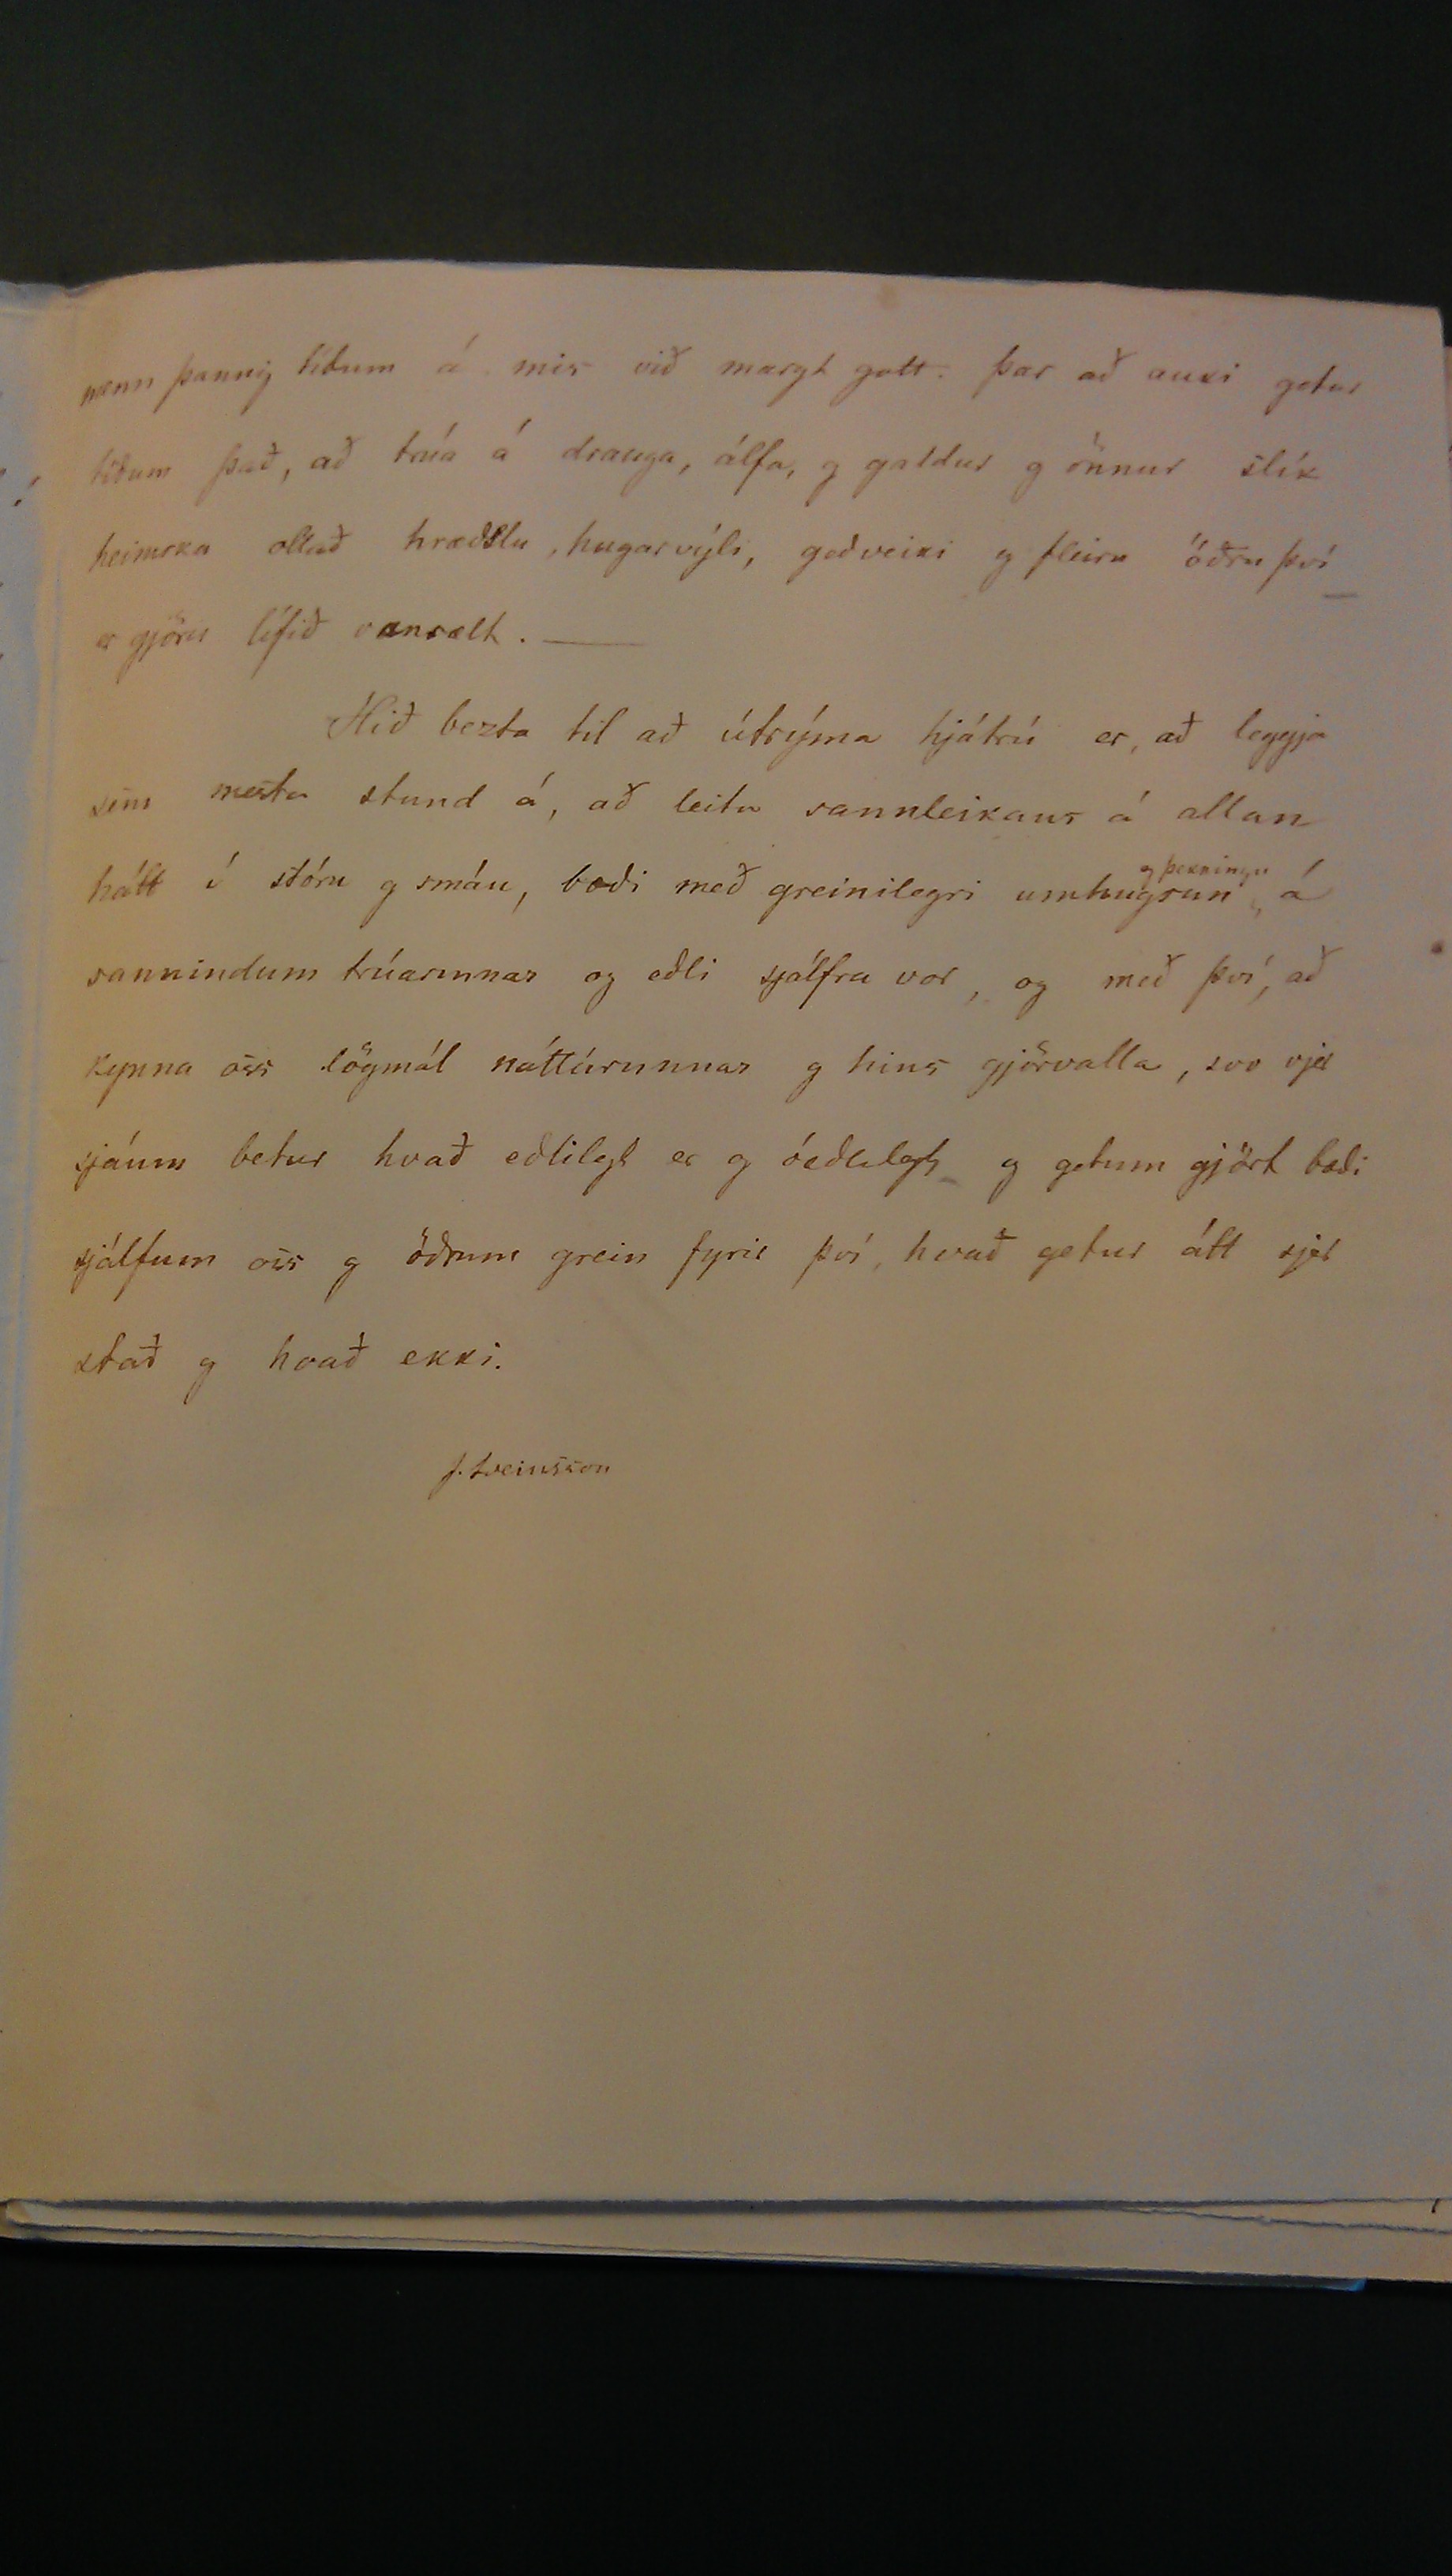 menn þannig tíðum á mis við margt gott. Þar að auki getur
tíðum það, að trúa á drauga, álfa, og galdur og önnur slík
heimska ollað hræðslu, hugarvýli, geðveiki og fleiru öðru því
er gjöra lífið vansælt. —
Hið bezta til að útrýma hjátrú er, að leggja
sem mesta stund á, að leita sannleikans á allan
hátt í stóru og smáu, bæði með greinilegri umhugsun og þekkingu á
sannindum trúarinnar og eðli sjálfra vor, og með því, að
kynna oss lögmál náttúrunnar og hins gjörvalla, svo vjer
sjáum betur hvað eðlilegt er og óeðlilegt og getum gjört bæði
sjálfum oss og öðrum grein fyrir því, hvað getur átt sjer
stað og hvað ekki.
J. Sveinsson